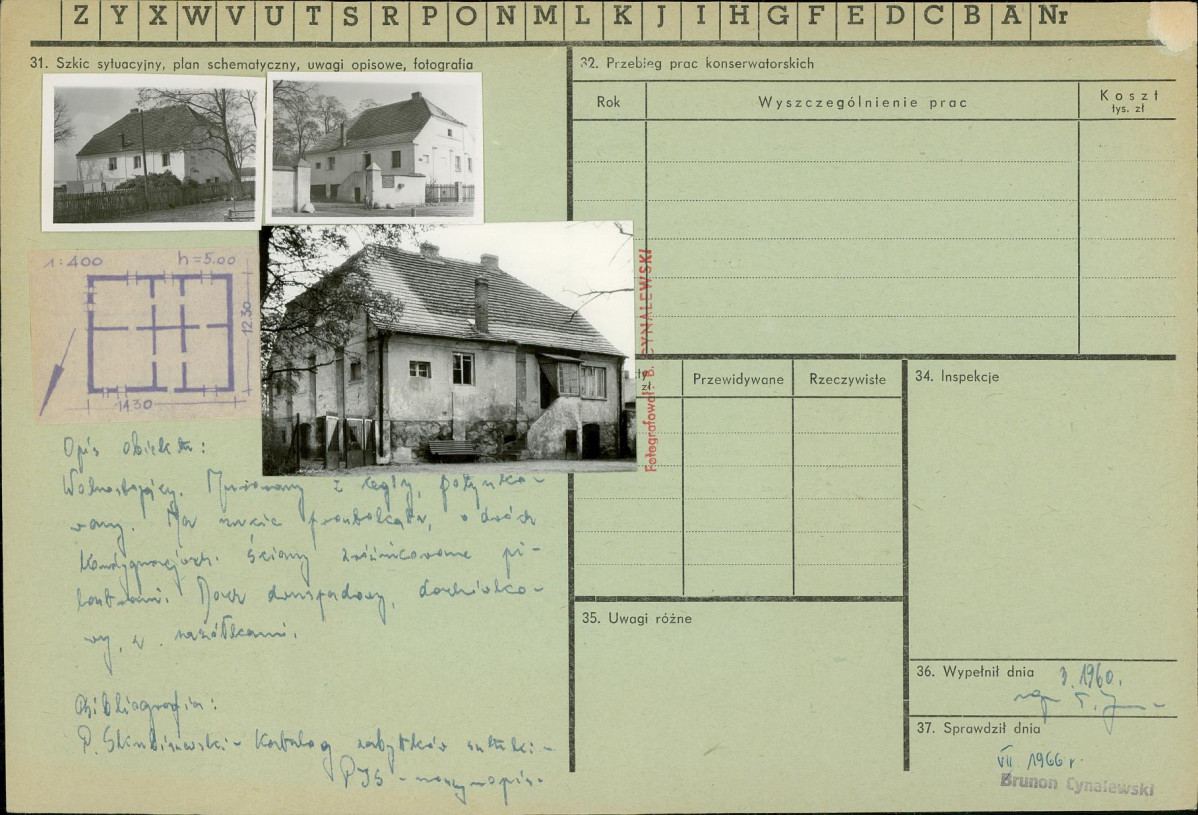 Z Y X W V U T S R P O N M L K J I H G F E D C B A Nr
31. Szkic sytuacyjny, plan schematyczny, uwagi opisowe, fotografia
1:400 h=5.00
12.30
14.30
Fotografował: B. CYNALEWSKI
Opis obiektu:
Wolnostojący. Murowany z cegły, potynko-
wany. Na rzucie prostokąta, o dwóch
kondygnacjach. Ściany zróżnicowane pi-
lastrami. Dach dwuspadowy, dachówko-
wy, z naczółkami.
Bibliografia:
P. Skubiszewski - Katalog zabytków sztuki -
PIS - maszynopis.
32. Przebieg prac konserwatorskich
Rok Wyszczególnienie prac Koszt
tys. zł
zł Przewidywane Rzeczywiste
34. Inspekcje
35. Uwagi różne
36. Wypełnił dnia 3.1960.
mgr
37. Sprawdził dnia
VII 1966 r.
Brunon Cynalewski